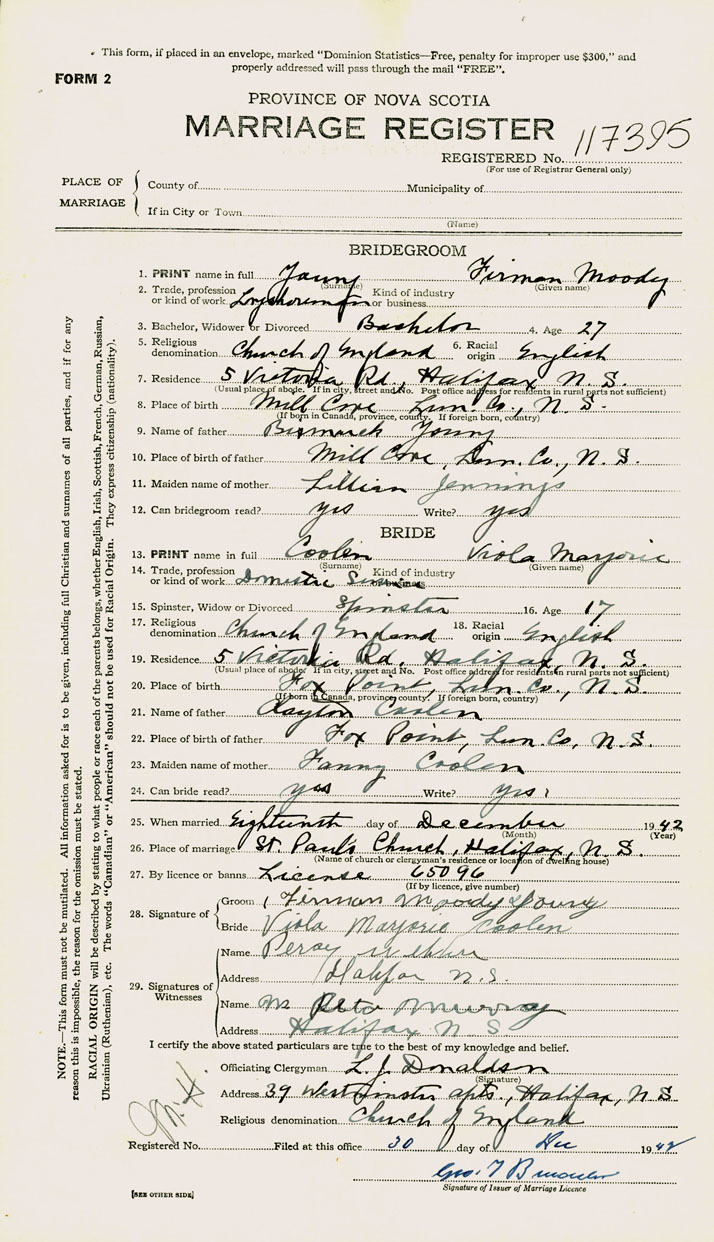 This form, if placed in an envelope, marked "Dominion Statistics—Free, penalty for improper use $300," and
properly addressed will pass through the mail "FREE".
FORM 2
PROVINCE OF NOVA SCOTIA
MARRIAGE REGISTER
117395
REGISTERED No.
(For use of Registrar General only)
PLACE OF MARRIAGE
County of Municipality of
If in City or Town
(Name)
BRIDEGROOM
1. PRINT name in full Young Firman Moody
(Surname) (Given name)
2. Trade, profession or kind of work Longshoreman Kind of industry or business
3. Bachelor, Widower or Divorced Bachelor 4. Age 27
5. Religious denomination Church of England 6. Racial origin English
7. Residence 5 Victoria Rd., Halifax N. S.
(Usual place of abode. If in city, street and No. Post office address for residents in rural parts not sufficient)
8. Place of birth Mill Cove Lun. Co., N. S.
(If born in Canada, province, county. If foreign born, country)
9. Name of father Bismarck Young
10. Place of birth of father Mill Cove, Lun. Co., N. S.
11. Maiden name of mother Lillian Jennings
12. Can bridegroom read? yes Write? yes
BRIDE
13. PRINT name in full Coolen Viola Marjorie
(Surname) (Given name)
14. Trade, profession or kind of work Domestic Kind of industry or business
15. Spinster, Widow or Divorced Spinster 16. Age 17
17. Religious denomination Church of England 18. Racial origin English
19. Residence 5 Victoria Rd, Halifax, N. S.
(Usual place of abode. If in city, street and No. Post office address for residents in rural parts not sufficient)
20. Place of birth Fox Point, Lun. Co., N. S.
(If born in Canada, province county. If foreign born, country)
21. Name of father Clayton Coolen
22. Place of birth of father Fox Point, Lun. Co, N. S.
23. Maiden name of mother Fanny Coolen
24. Can bride read? yes Write? yes
25. When married Eighteenth day of December 1942
(Month) (Year)
26. Place of marriage St Paul's Church, Halifax, N. S.
(Name of church or clergyman's residence or location of dwelling house)
27. By licence or banns License 65096
(If by licence, give number)
28. Signature of
Groom Firman Moody Young
Bride Viola Marjorie Coolen
29. Signatures of Witnesses
Name Percy
Address Halifax N.S.
Name Murray
Address Halifax N S
I certify the above stated particulars are true to the best of my knowledge and belief.
Officiating Clergyman L. J. Donaldson
(Signature)
Address 39 Westminster apts., Halifax, N S
Religious denomination Church of England
Registered No. Filed at this office 30 day of Dec 1942
Geo.
Signature of Issuer of Marriage Licence
[SEE OTHER SIDE]
NOTE.—This form must not be mutilated. All information asked for is to be given, including full Christian and surnames of all parties, and if for any
reason this is impossible, the reason for the omission must be stated.
RACIAL ORIGIN will be described by stating to what people or race each of the parents belongs, whether English, Irish, Scottish, French, German, Russian,
Ukrainian (Ruthenian), etc. The words "Canadian" or "American" should not be used for Racial Origin. They express citizenship (nationality).